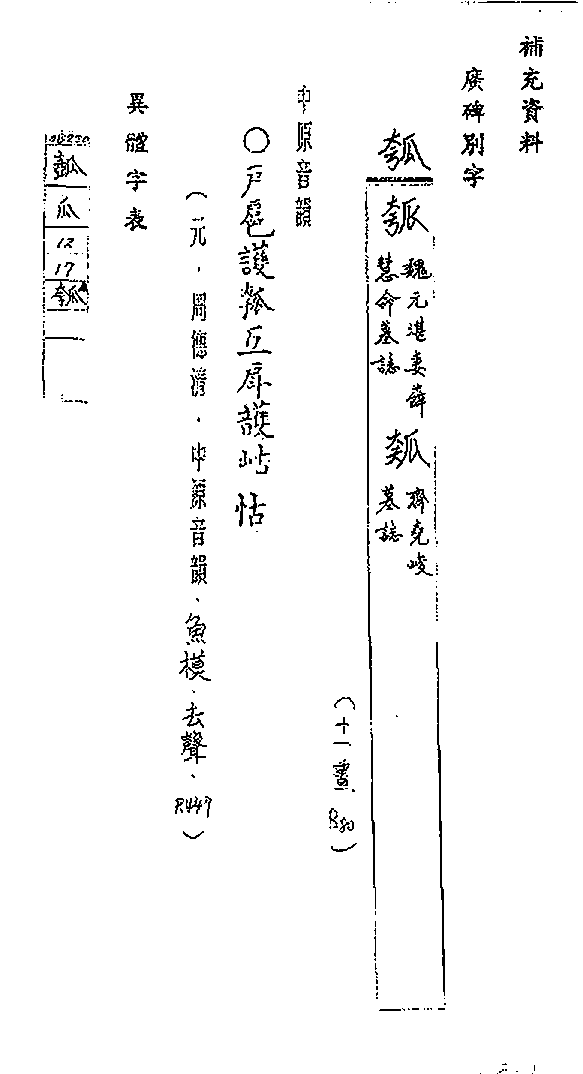 補充資料
廣碑別字
瓠
瓠 魏元湛妻薛慧命墓誌
瓠 齊堯峻墓誌
（十一畫 P.80）
中原音韻
○戶扈護瓠互戽頀岵怙
（元．周德清．中原音韻．魚模．去聲．P.447）
異體字表
瓜
12
17
瓠